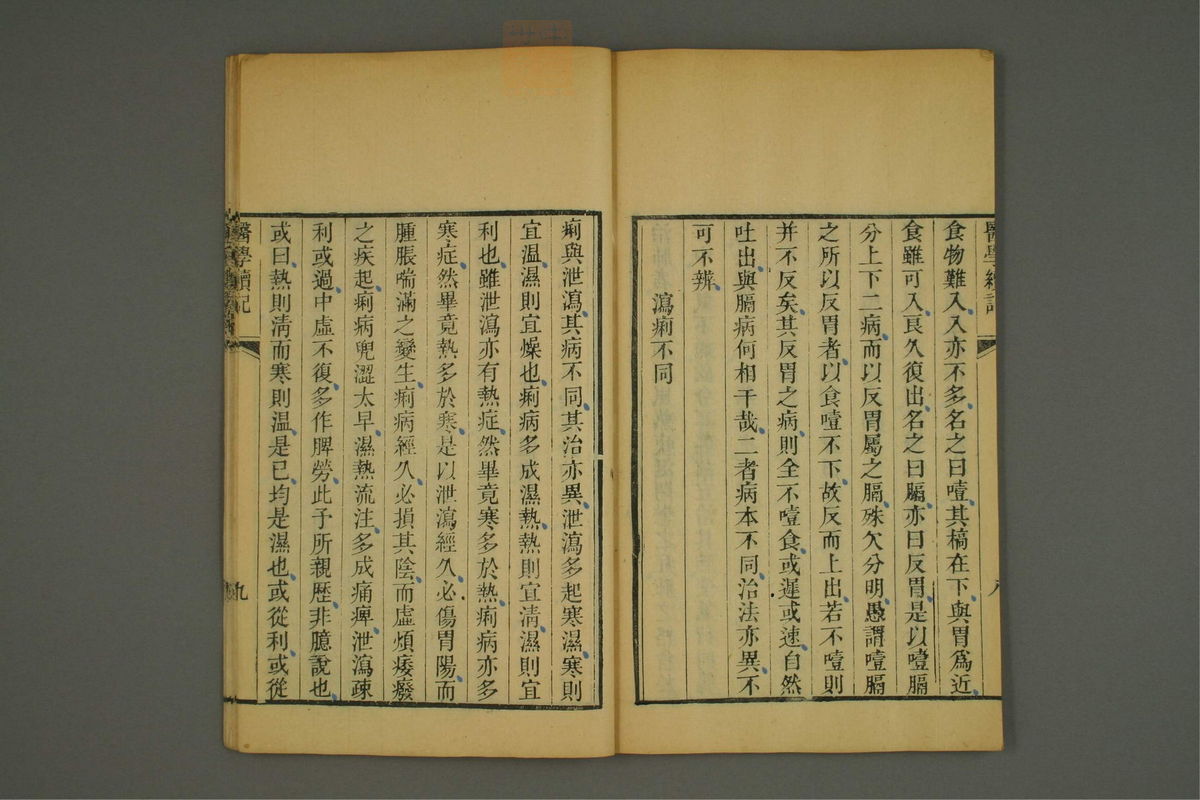 醫學續記
八
食物難入入亦不多名之曰噎其槁在下與胃爲近
食雖可入良久復出名之曰膈亦曰反胃是以噎膈
分上下二病而以反胃屬之膈殊欠分明愚謂噎膈
之所以反胃者以食噎不下故反而上出若不噎則
并不反矣其反胃之病則全不噎食或遲或速自然
吐出與膈病何相干哉二者病本不同治法亦異不
可不辨
瀉痢不同
痢與泄瀉其病不同其治亦異泄瀉多起寒濕寒則
宜温濕則宜燥也痢病多成濕熱熱則宜清濕則宜
利也雖泄瀉亦有熱症然畢竟寒多於熱痢病亦多
寒症然畢竟熱多於寒是以泄瀉經久必傷胃陽而
腫脹喘滿之變生痢病經久必損其陰而虛煩痿廢
之疾起痢病兜澀太早濕熱流注多成痛痺泄瀉疎
利或過中虛不復多作脾勞此予所親歷非臆說也
或曰熱則清而寒則温是已均是濕也或從利或從
醫學讀記
九